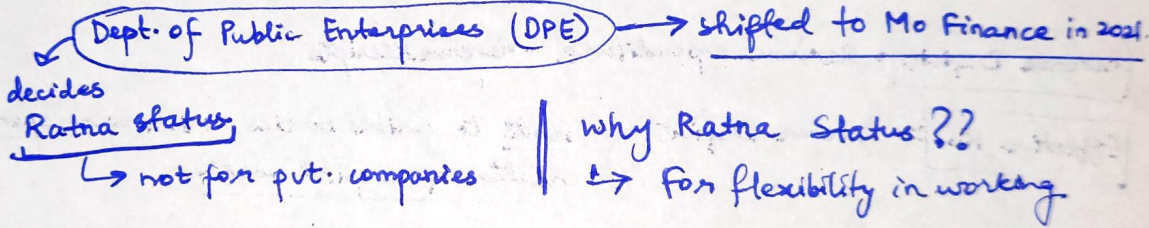 Dept. of Public Enterprises (DPE) → shifted to Mo Finance in 2021.
decides
Ratna status
↳ not for pvt. companies
Why Ratna Status??
↳ For flexibility in working